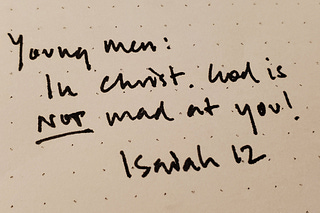 Young men:
In Christ. God is
NOT mad at you!
Isaiah 12